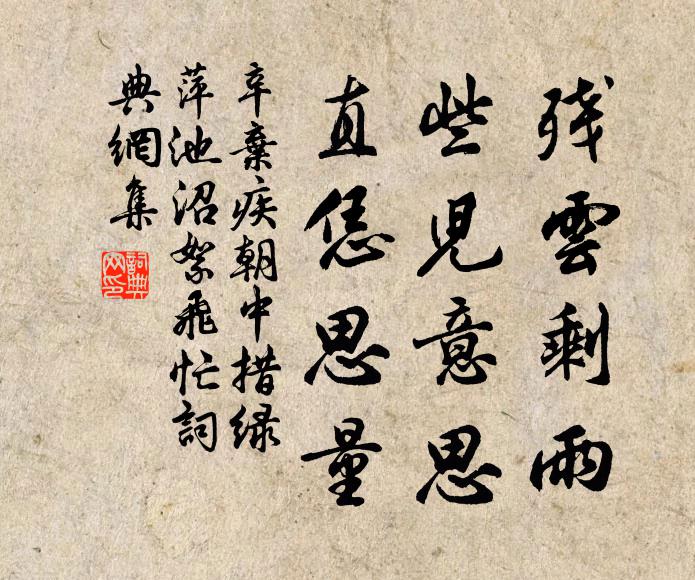 残雲剩雨
些兒意思
直恁思量
辛棄疾朝中措緑
萍池沼絮飛忙詞
典網集
詞典
网印